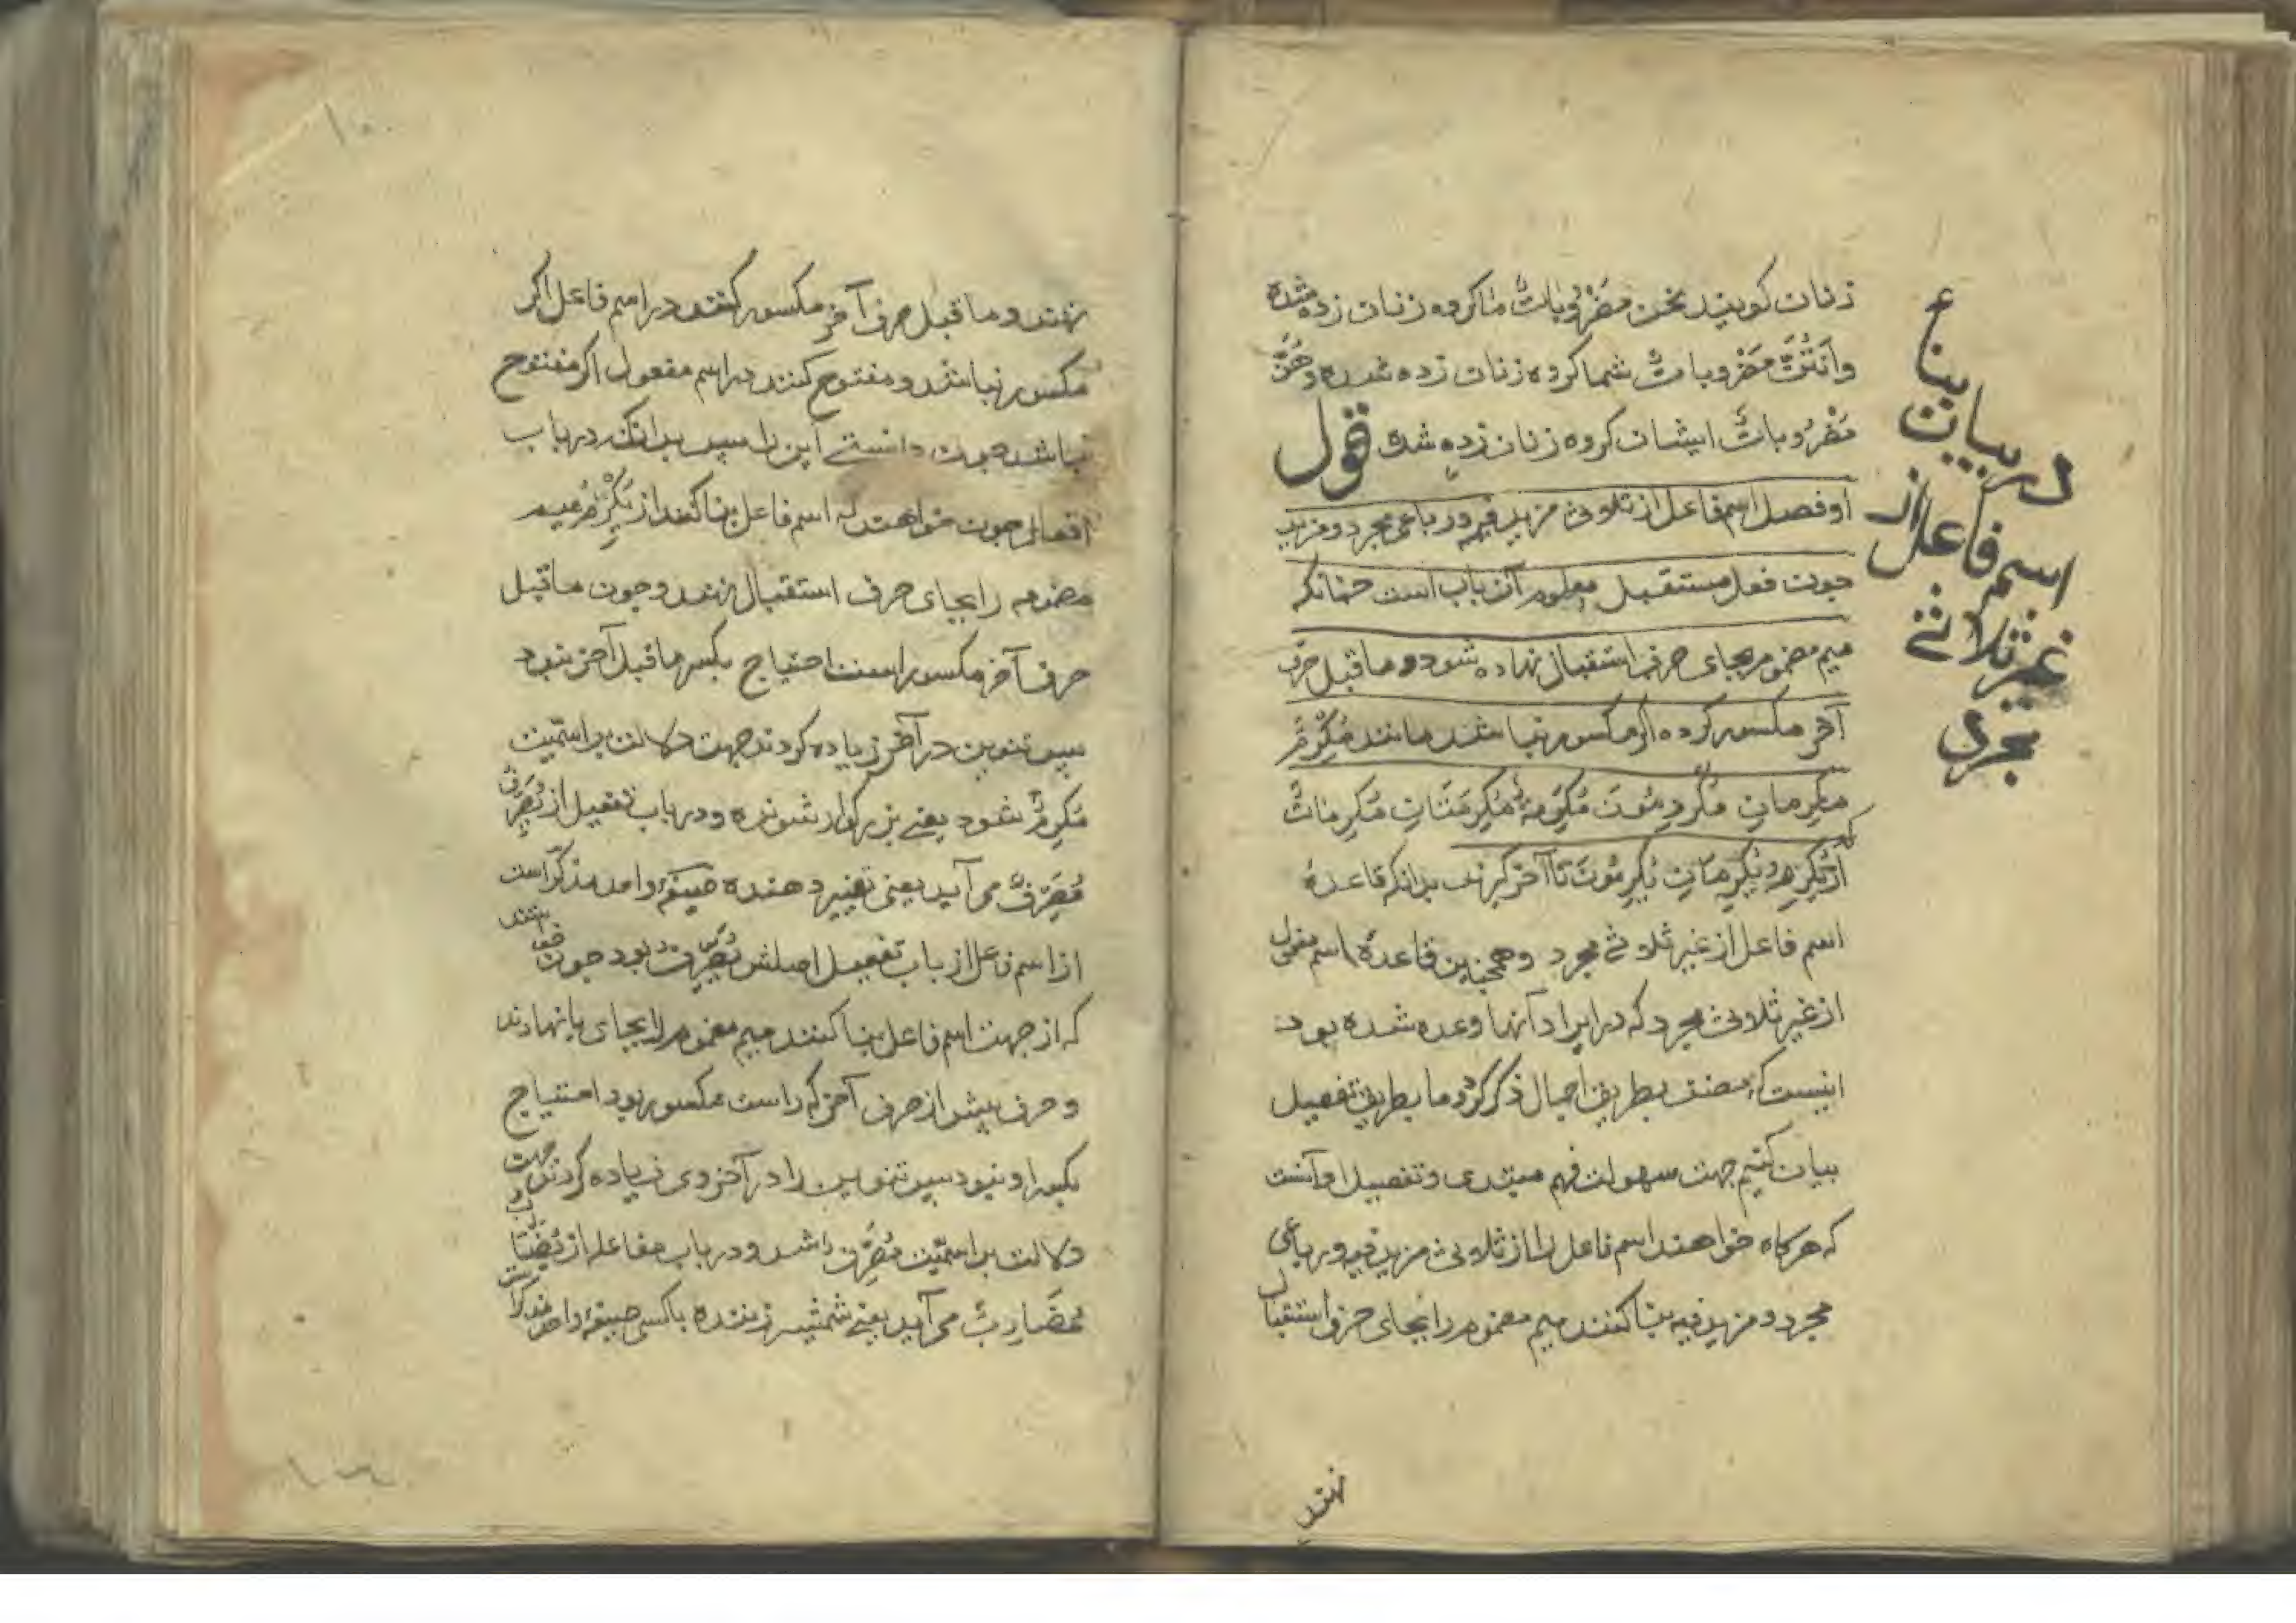 زنان کویند نحن مَضْرُوباتٌ ما کروه زنان زده شده
وَاَنْتُنَّ مَضْروباتٌ شما کروه زنان زده شده وَهُنَّ
مَضْرُوباتٌ ایشان کروه زنان زده شده قول
او فصل اسم فاعل از ثلاثی مزید فیه و رباعی مجرد و مزید
جون فعل مستقبل معلوم آن باب است جنانکه
میم مضموم بجای حرف استقبال نهاده شود و ما قبل حرف
آخر مکسور کرده اکر مکسور نباشد مانند مُکْرِمٌ
مکرِمانِ مُکرِمُونَ مُکرِمَةٌ مُکرِمَتَانِ مُکرِماتٌ
که از یُکرِمُ و یُکرِمَانِ یُکرِمُونَ تا آخر کیرند بدانکه قاعدهٔ
اسم فاعل از غیر ثلاثی مجرد و همجنین قاعدهٔ اسم مفعول
از غیر ثلاثی مجرد که در ایراد آنها وعده شده بود
اینست که مصنف بطریق اجمال ذکر کرد ما بطریق تفصیل
بیان کنیم جهت سهولت فهم مبتدی و تفصیل او آنست
که هرکاه خواهند اسم فاعل را از ثلاثی مزید فیه و رباعی
مجرد و مزید فیه بنا کنند میم مضموم را بجای حرف استقبال
نهند
در بیان بناء
اسم فاعل از
غیر ثلاثی
مجرد
نهند و ما قبل حرف آخر مکسور کنند در اسم فاعل اکر
مکسور نباشد و مفتوح کنند در اسم مفعول اکر مفتوح
نباشد جون دانستی این را پس بدانکه در باب
افعال جون خواهند که اسم فاعل بنا کنند از یُکْرِمُ میم
مضمومه را بجای حرف استقبال نهند و جون ما قبل
حرف آخر مکسور است احتیاج بکسر ما قبل آخر نبود
پس تنوین در آخر زیاده کردند جهت دلالت بر اسمیت
مُکرِمٌ شود یعنی بزرکوار شونده و در باب تفعیل از یُصَرِّفُ
مُصَرِّفٌ می آید یعنی تغییر دهنده صیغهٔ واحد مذکر است
از اسم فاعل از باب تفعیل اصلش یُصَرِّفُ بود جون خواستند
که از جهت اسم فاعل بنا کنند میم مضموم را بجای یا نهادند
و حرف پیش از حرف آخر که راست مکسور بود احتیاج
بکسر او نبود پس تنوین را در آخر وی زیاده کردند جهت
دلالت بر اسمیّت مُصَرِّفٌ شد و در باب مفاعله از یُضَارِبُ
مُضَارِبٌ می آید یعنی شمشیر زننده با کسی صیغهٔ واحد مذکر است